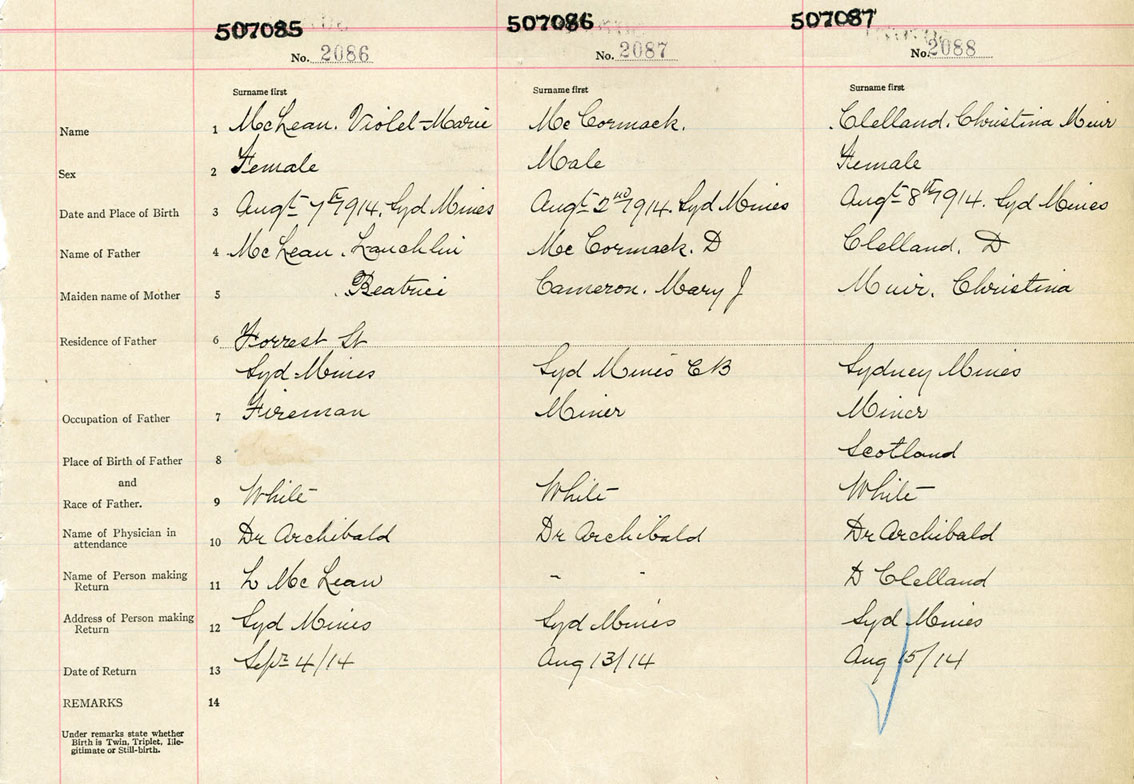 507085 507086 507087
No. 2086 No. 2087 No. 2088
Surname first Surname first Surname first
Name 1 McLean. Violet-Marie Mc Cormack. Clelland. Christina Muir
Sex 2 Female Male Female
Date and Place of Birth 3 Augt 7th 1914. Syd Mines Augt 2nd 1914. Syd Mines Augt 8th 1914. Syd Mines
Name of Father 4 McLean. Lauchlin Mc Cormack. D Clelland. D
Maiden name of Mother 5 . Beatrice Cameron. Mary J Muir. Christina
Residence of Father 6 Forrest St
Syd Mines Syd Mines CB Sydney Mines
Occupation of Father 7 Fireman Miner Miner
Place of Birth of Father 8 Scotland
and
Race of Father. 9 White White White
Name of Physician in
attendance 10 Dr Archibald Dr Archibald Dr Archibald
Name of Person making
Return 11 L McLean - - D Clelland
Address of Person making
Return 12 Syd Mines Syd Mines Syd Mines
Date of Return 13 Sept 4/14 Aug 13/14 Aug 15/14
REMARKS 14
Under remarks state whether
Birth is Twin, Triplet, Ille-
gitimate or Still-birth.